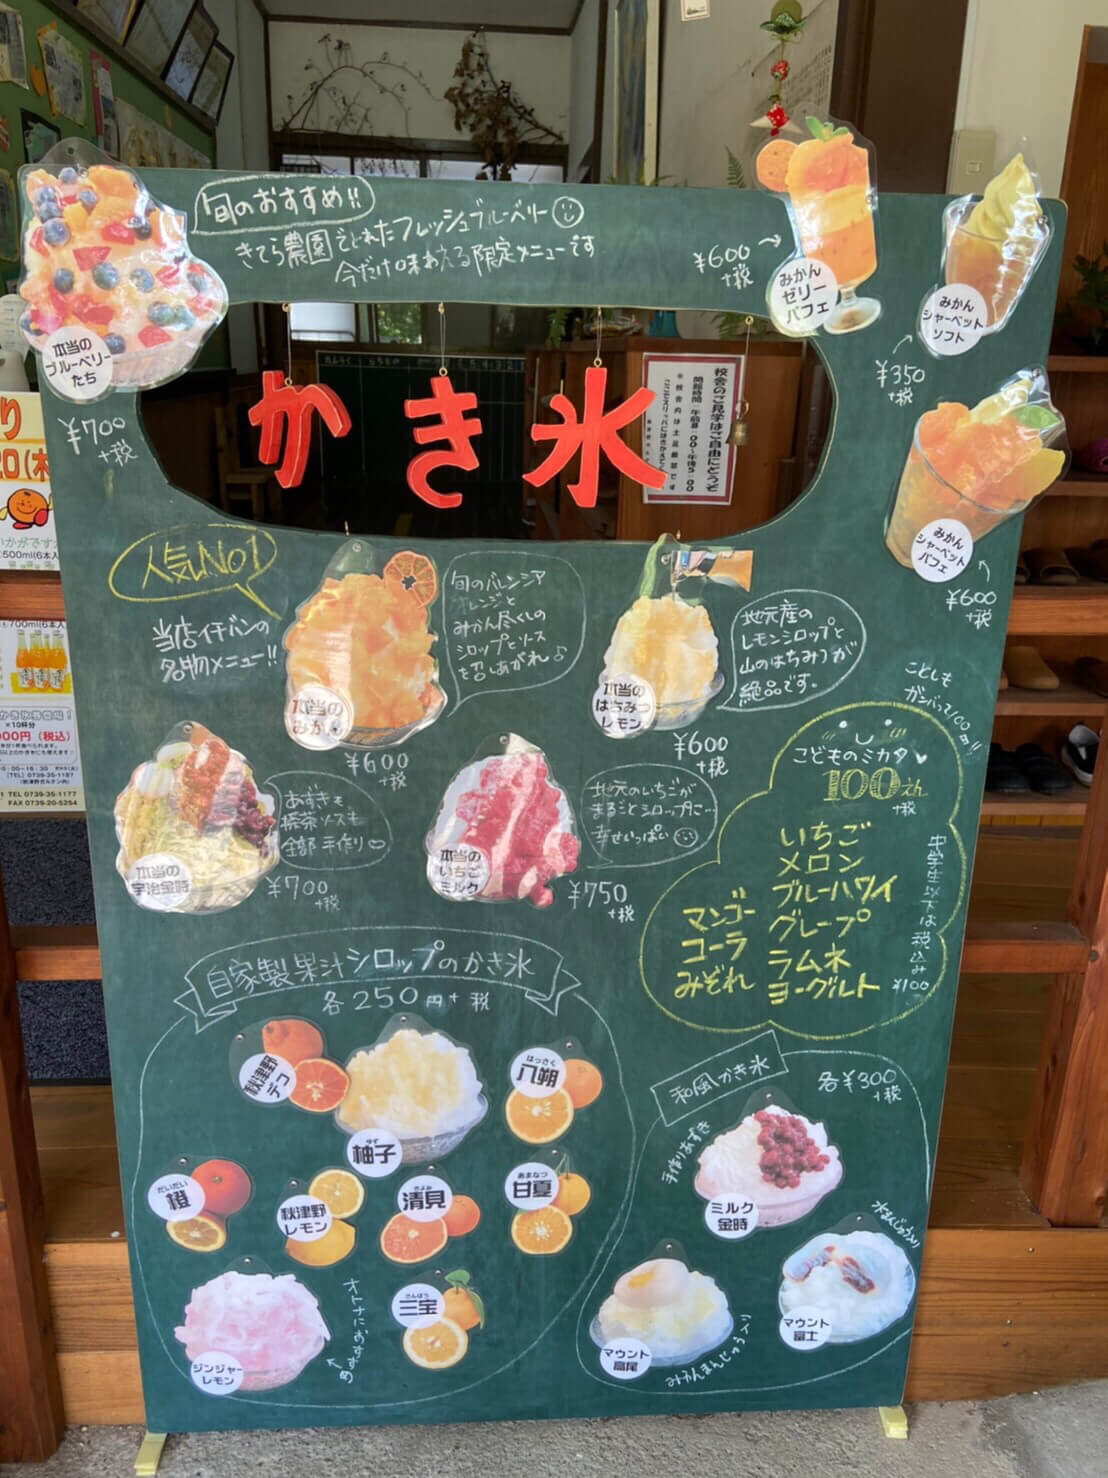 旬のおすすめ!!
きてら農園でとれたフレッシュブルーベリー
今だけ味わえる限定メニューです
本当の
ブルーベリー
たち
¥700
+税
¥600
+税
みかん
ゼリー
パフェ
みかん
シャーベット
ソフト
¥350
+税
みかん
シャーベット
パフェ
¥600
+税
かき氷
校舎のご見学はご自由にどうぞ
開館時間 午前8:00〜午後5:00
※校舎内は土足厳禁です
人気No1
当店イチバンの
名物メニュー!!
本当の
みかん
¥600
+税
旬のバレンシア
オレンジと
みかん尽くしの
シロップとソース
を召しあがれ♪
本当の
はちみつ
レモン
¥600
+税
地元産の
レモンシロップと
山のはちみつが
絶品です。
本当の
宇治金時
¥700
+税
あずきも
抹茶ソースも
全部手作り♡
本当の
いちご
ミルク
¥750
+税
地元のいちごが
まるごとシロップに…
幸せいっぱい
ことしも
ガンバって100円!!
こどものミカタ♥
100えん
+税
いちご
メロン
ブルーハワイ
グレープ
ラムネ
ヨーグルト
マンゴー
コーラ
みぞれ
中学生以下は税込み
¥100
自家製果汁シロップのかき氷
各250円+税
秋津野
デコ
ゆず
柚子
はっさく
八朔
だいだい
橙
秋津野
レモン
きよみ
清見
あまなつ
甘夏
さんぽう
三宝
ジンジャー
レモン
オトナにおすすめ
和風かき氷
各¥300
+税
手作りあずき
ミルク
金時
マウント
富士
水まんじゅう入り
マウント
高尾
みかんまんじゅう入り
500ml(6本入
700ml(6本入
×10杯分
000円(税込)
[TEL] 0739-35-1187
TEL 0739-35-1177
FAX 0739-20-5254